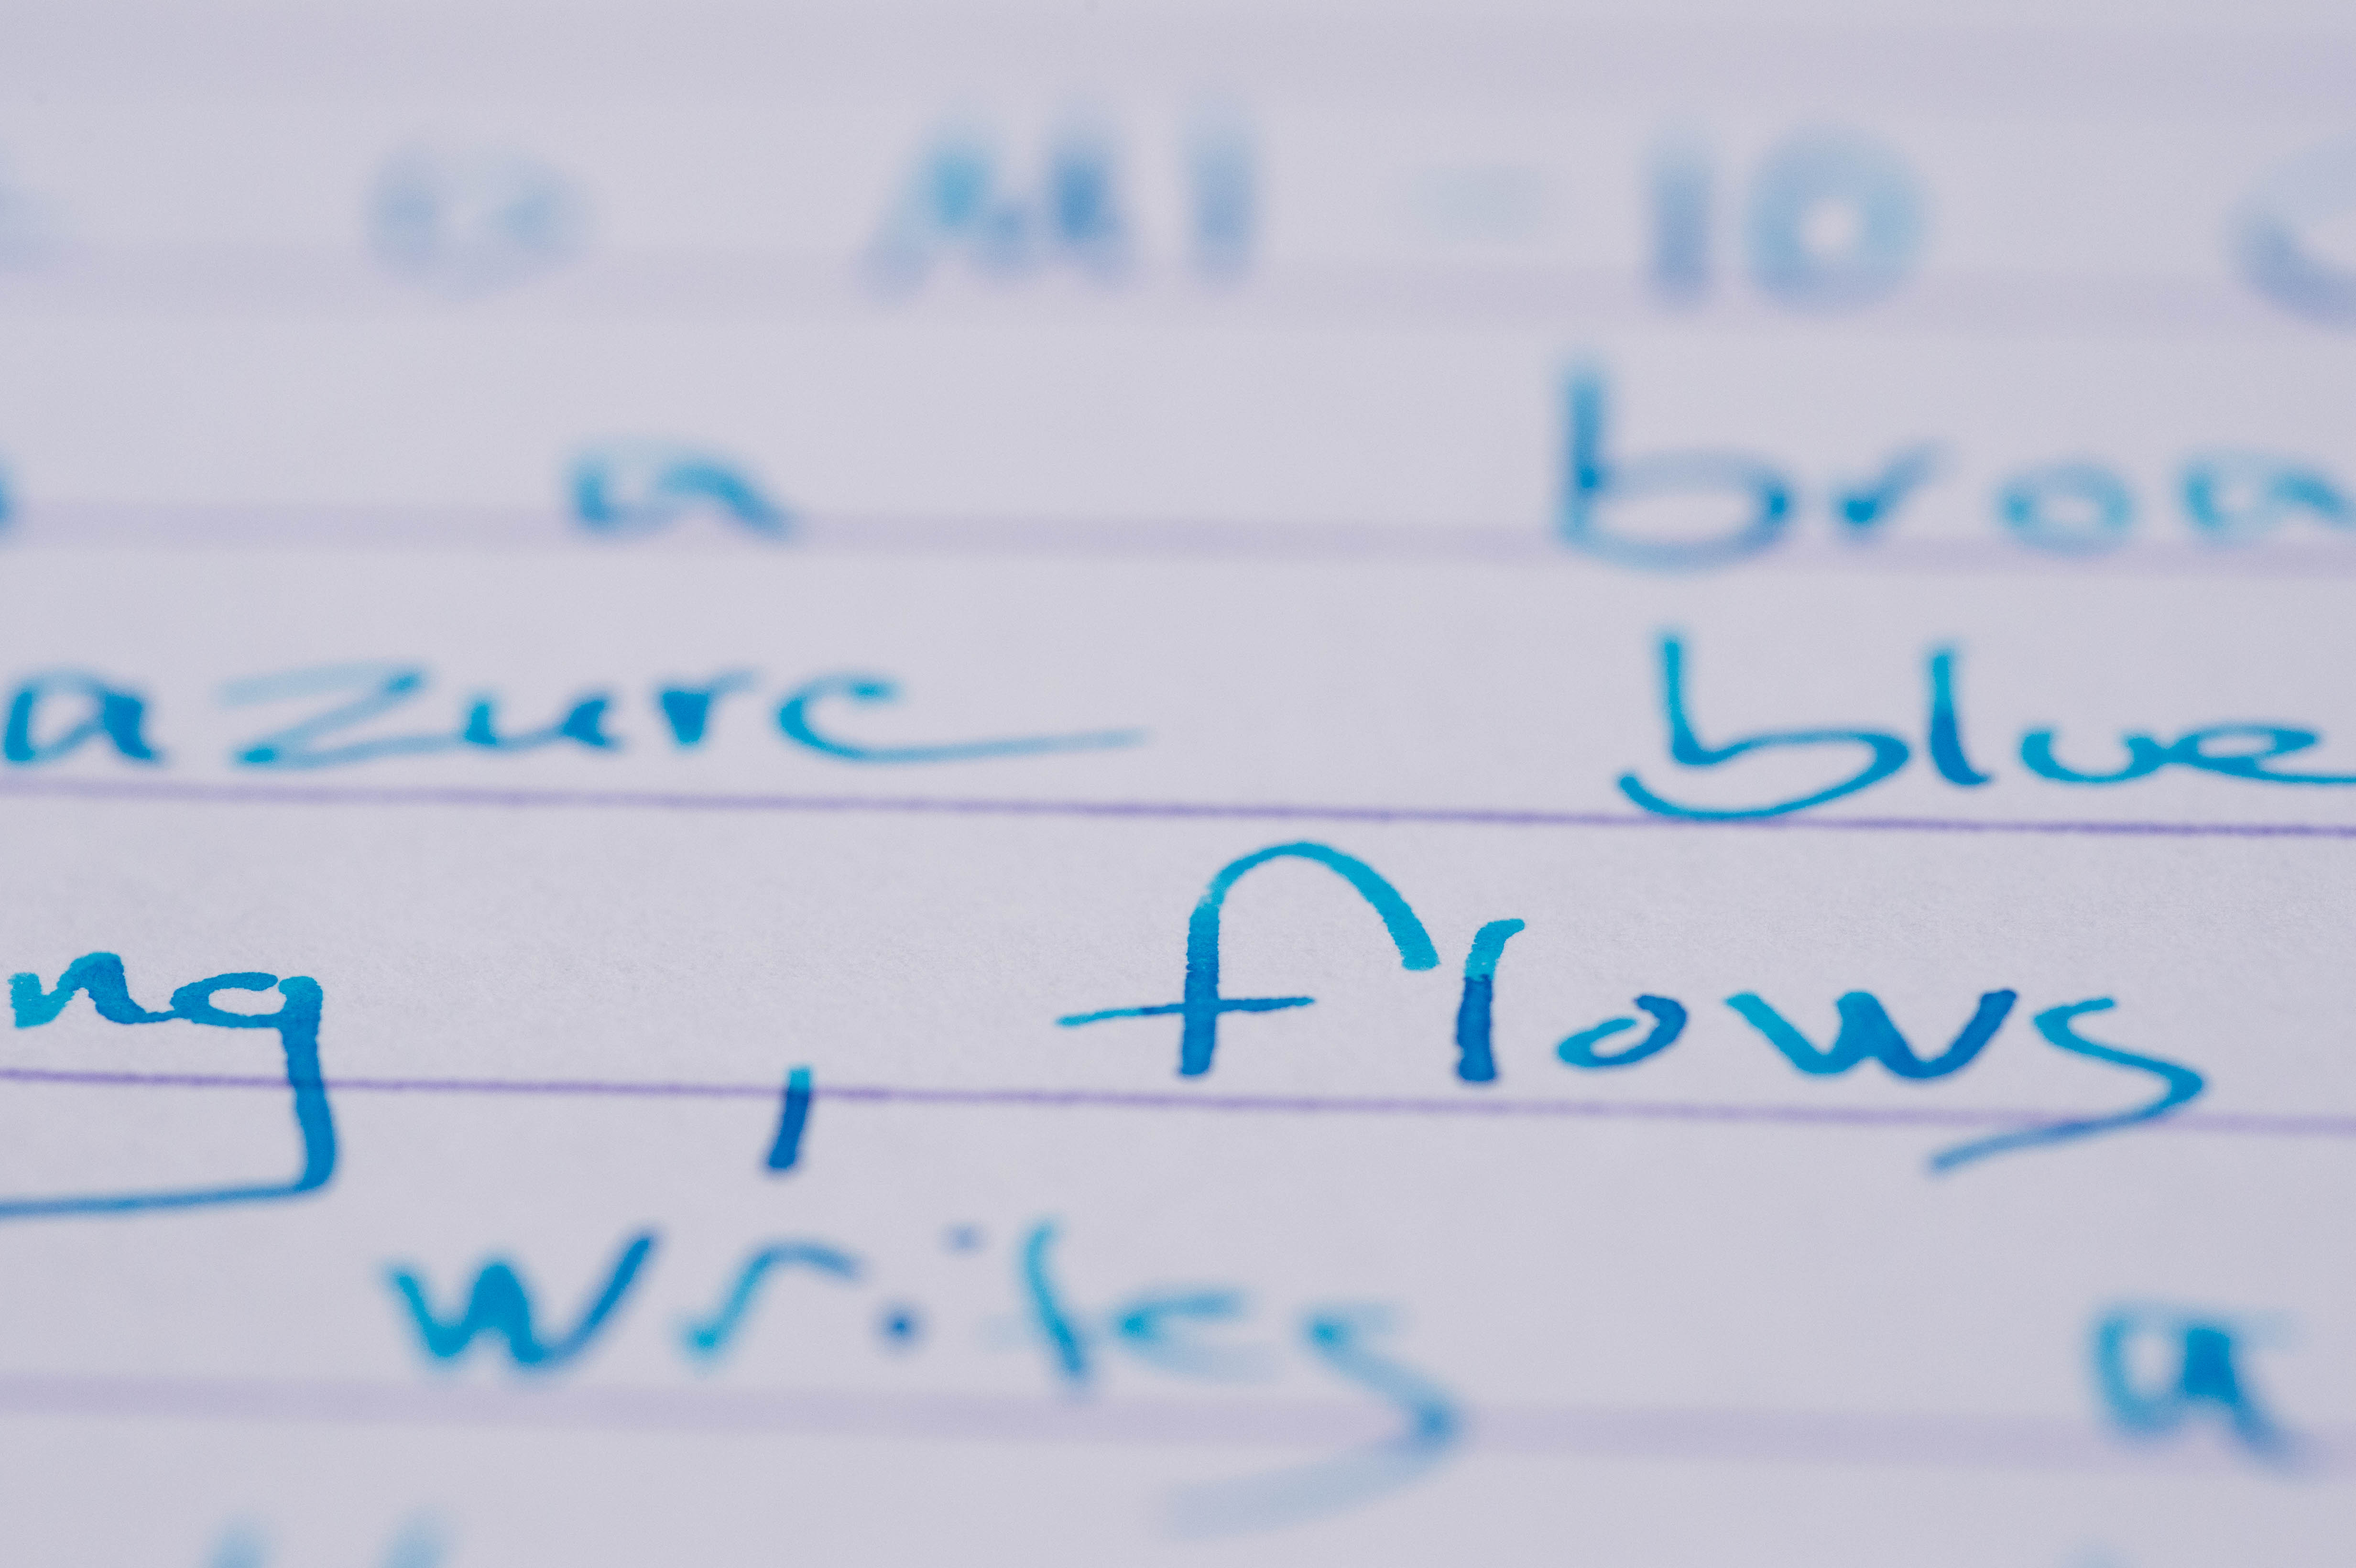 M1 - 10
a broa
azure blue
ng flows
writes a